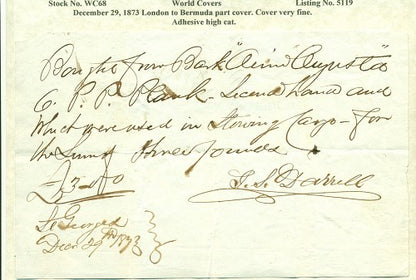 Stock No. WC68 World Covers Listing No. 5119
December 29, 1873 London to Bermuda part cover. Cover very fine.
Adhesive high cat.
Bought from Bark "Augusta"
6 P. P. Plank - Second hand and
Which were used in Stowing Cargo - for
the Sum of three pounds
£3-0-0
J. S. Darrell
St Georges
Decr 29th 1873